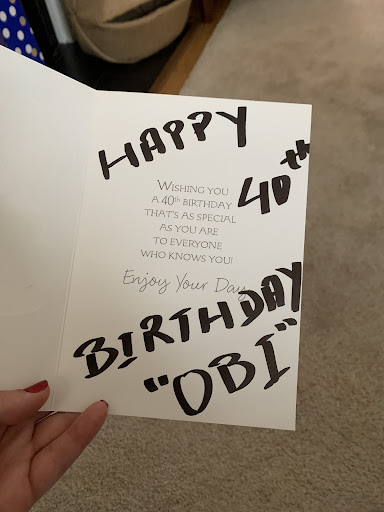 HAPPY
40th
WISHING YOU
A 40th BIRTHDAY
THAT'S AS SPECIAL
AS YOU ARE
TO EVERYONE
WHO KNOWS YOU!
Enjoy Your Day
BIRTHDAY
"OBI"